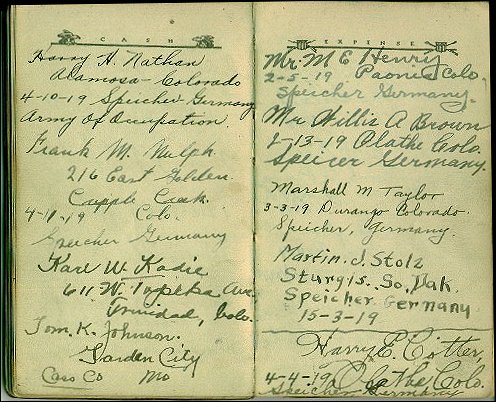 CASH
Harry H. Nathan
Alamosa - Colorado
4-10-19 Speicher Germany
Army Of Occupation.
Frank M. Nulph
216 East Golden
Cripple Creek
4-10-19 Colo.
Speicher Germany
Karl W. Kadie
611 W. Topeka Ave
Trinidad, Colo.
Tom. K. Johnson.
Garden City
Cass Co Mo
EXPENSE
Mr. M E Henry
2-5-19 Paonia Colo.
Speicher Germany.
Mr Willis A Brown
2-13-19 Olathe Colo.
Speicer Germany.
Marshall M Taylor
3-3-19 Durango Colorado.
Speicher, Germany.
Martin. J. Stolz
Sturgis. So. Dak.
Speicher Germany
15-3-19
Harry E. Cotter,
4-4-19 Olathe Colo.
Speicher Germany